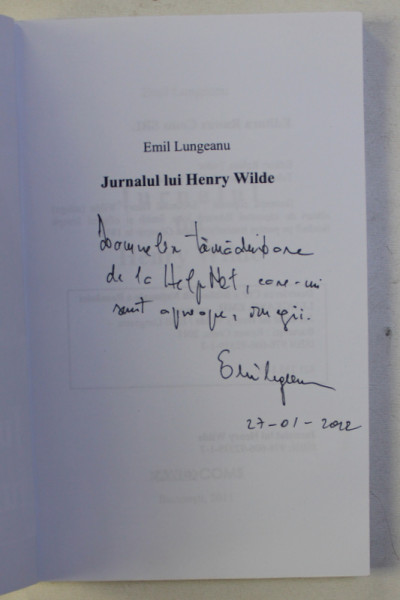 Emil Lungeanu
Jurnalul lui Henry Wilde
Doamnelor tămăduitoare
de la HelpNet, care-mi
sunt aproape, omagii.
27-01-2012